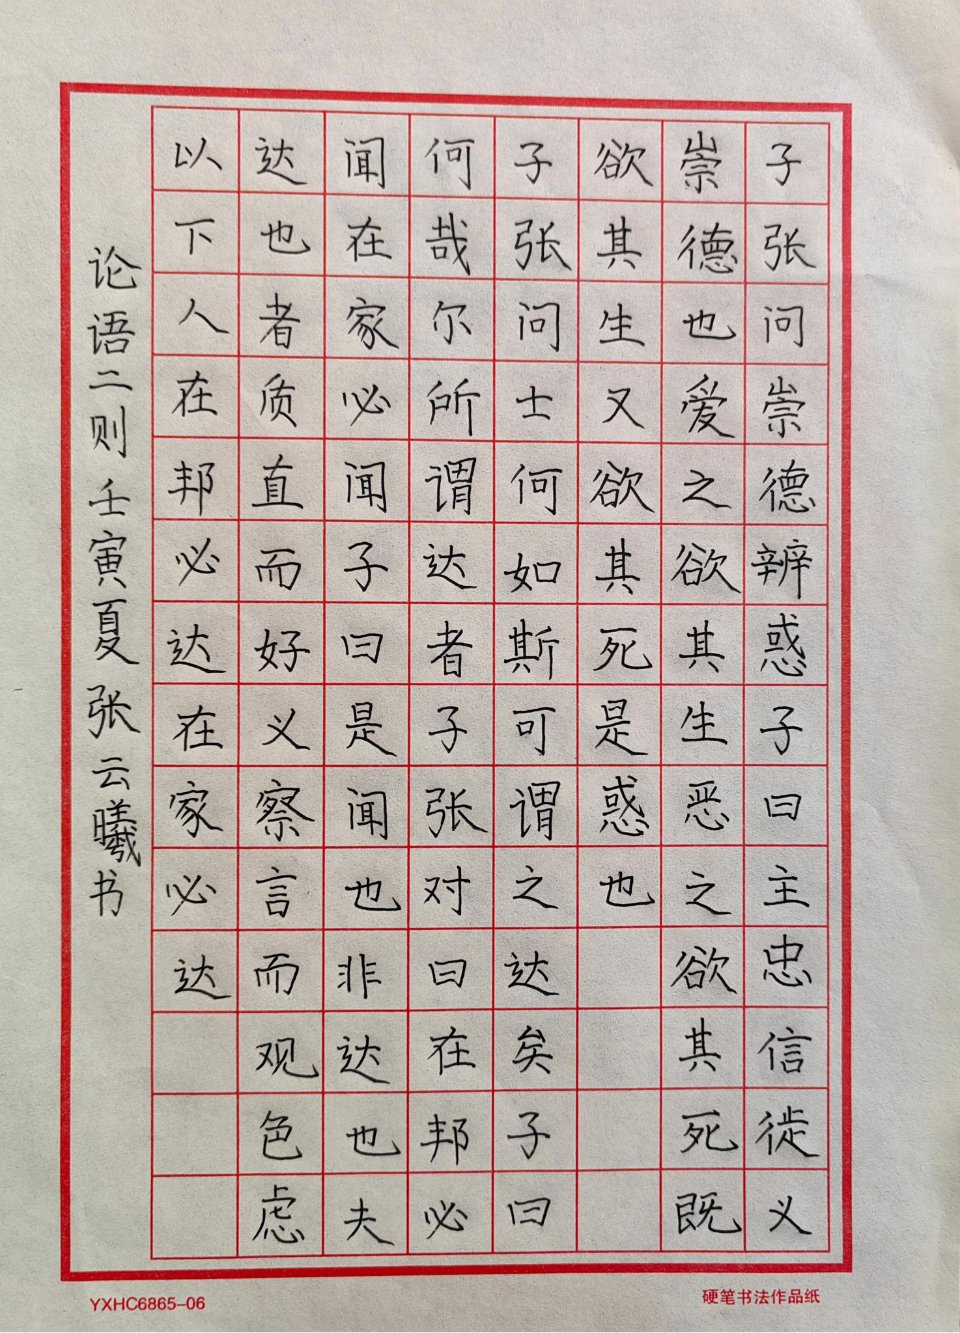 子张问崇德辨惑子曰主忠信徙义
崇德也爱之欲其生恶之欲其死既
欲其生又欲其死是惑也
子张问士何如斯可谓之达矣子曰
何哉尔所谓达者子张对曰在邦必
闻在家必闻子曰是闻也非达也夫
达也者质直而好义察言而观色虑
以下人在邦必达在家必达
论语二则壬寅夏张云曦书
YXHC6865-06
硬笔书法作品纸